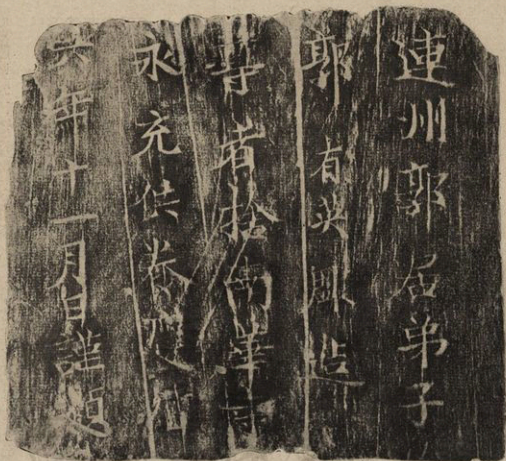 連州郭居弟子
郭有英雕造
尊者捨南華寺
永充供養慶曆
六年十一月日謹題